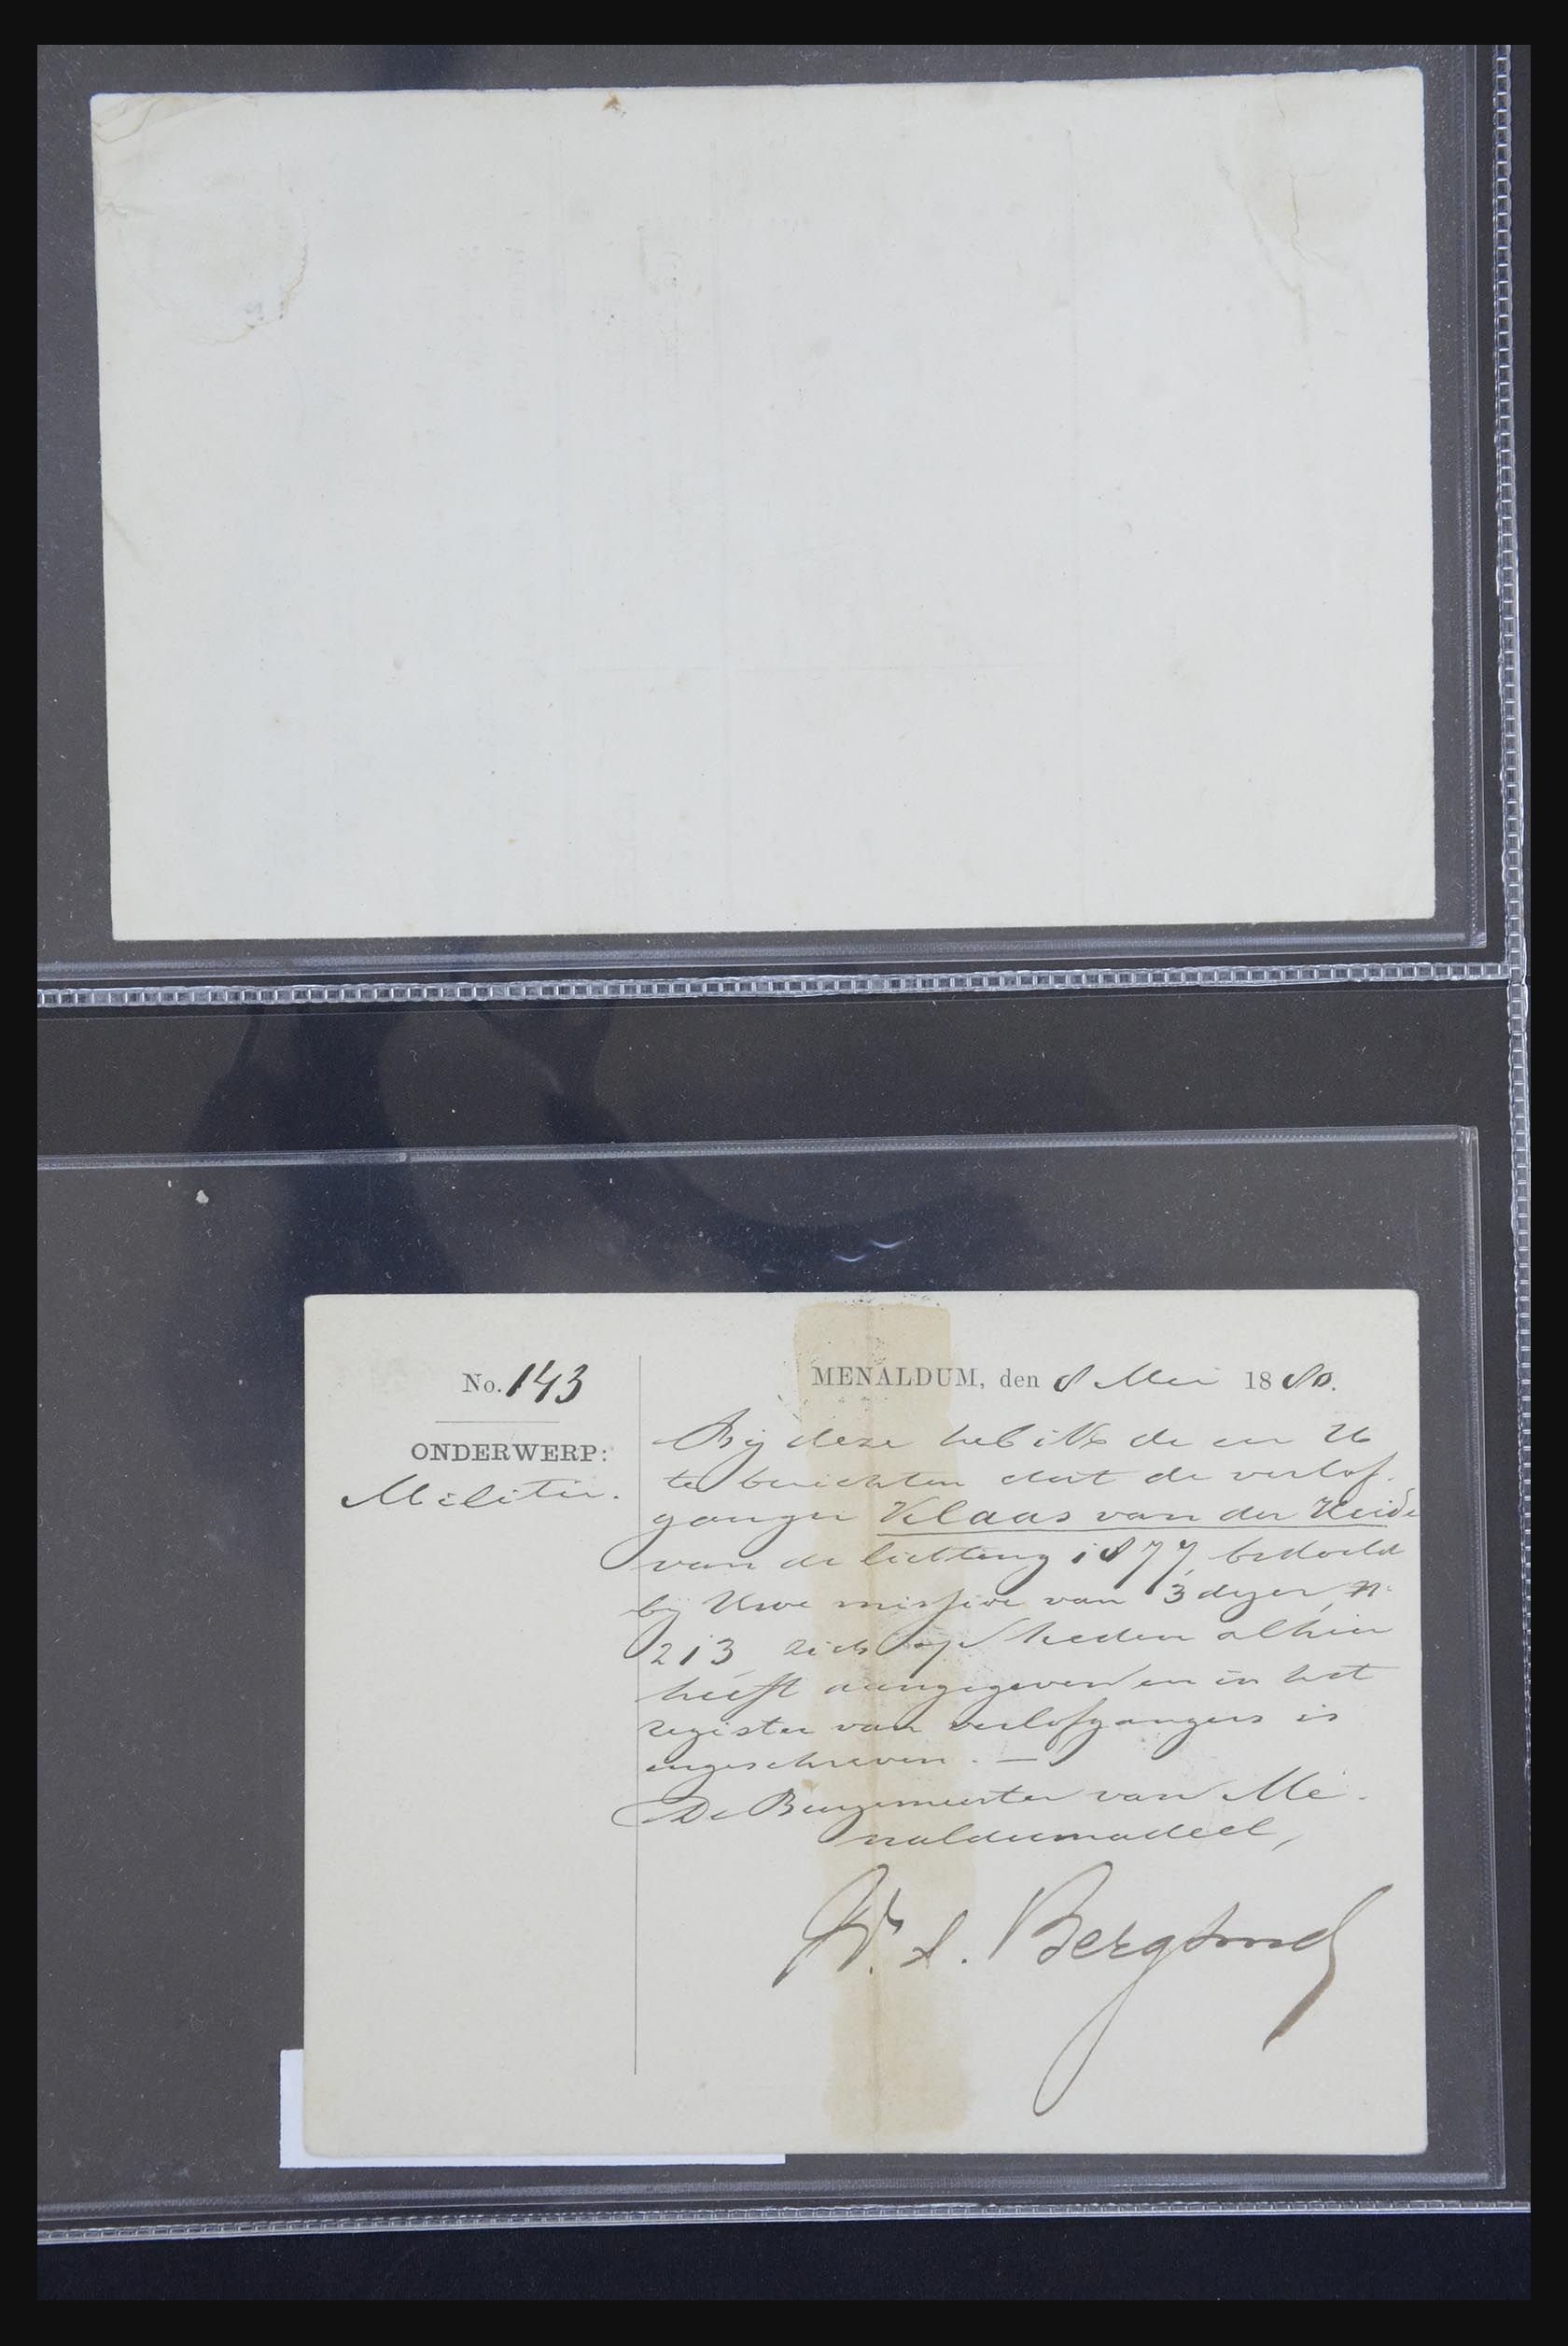 No. 143
MENALDUM, den 8 Mei 1880.
ONDERWERP:
Militie.
Bij deze heb ik de eer U
te berichten dat de verlof-
ganger Klaas van der Heide
van de lichting 1877, bedoeld
bij Uwe missive van 3 dezer, n.
213 zich op heden alhier
heeft aangegeven en in het
register van verlofgangers is
ingeschreven. —
De Burgemeester van Me-
naldumadeel,